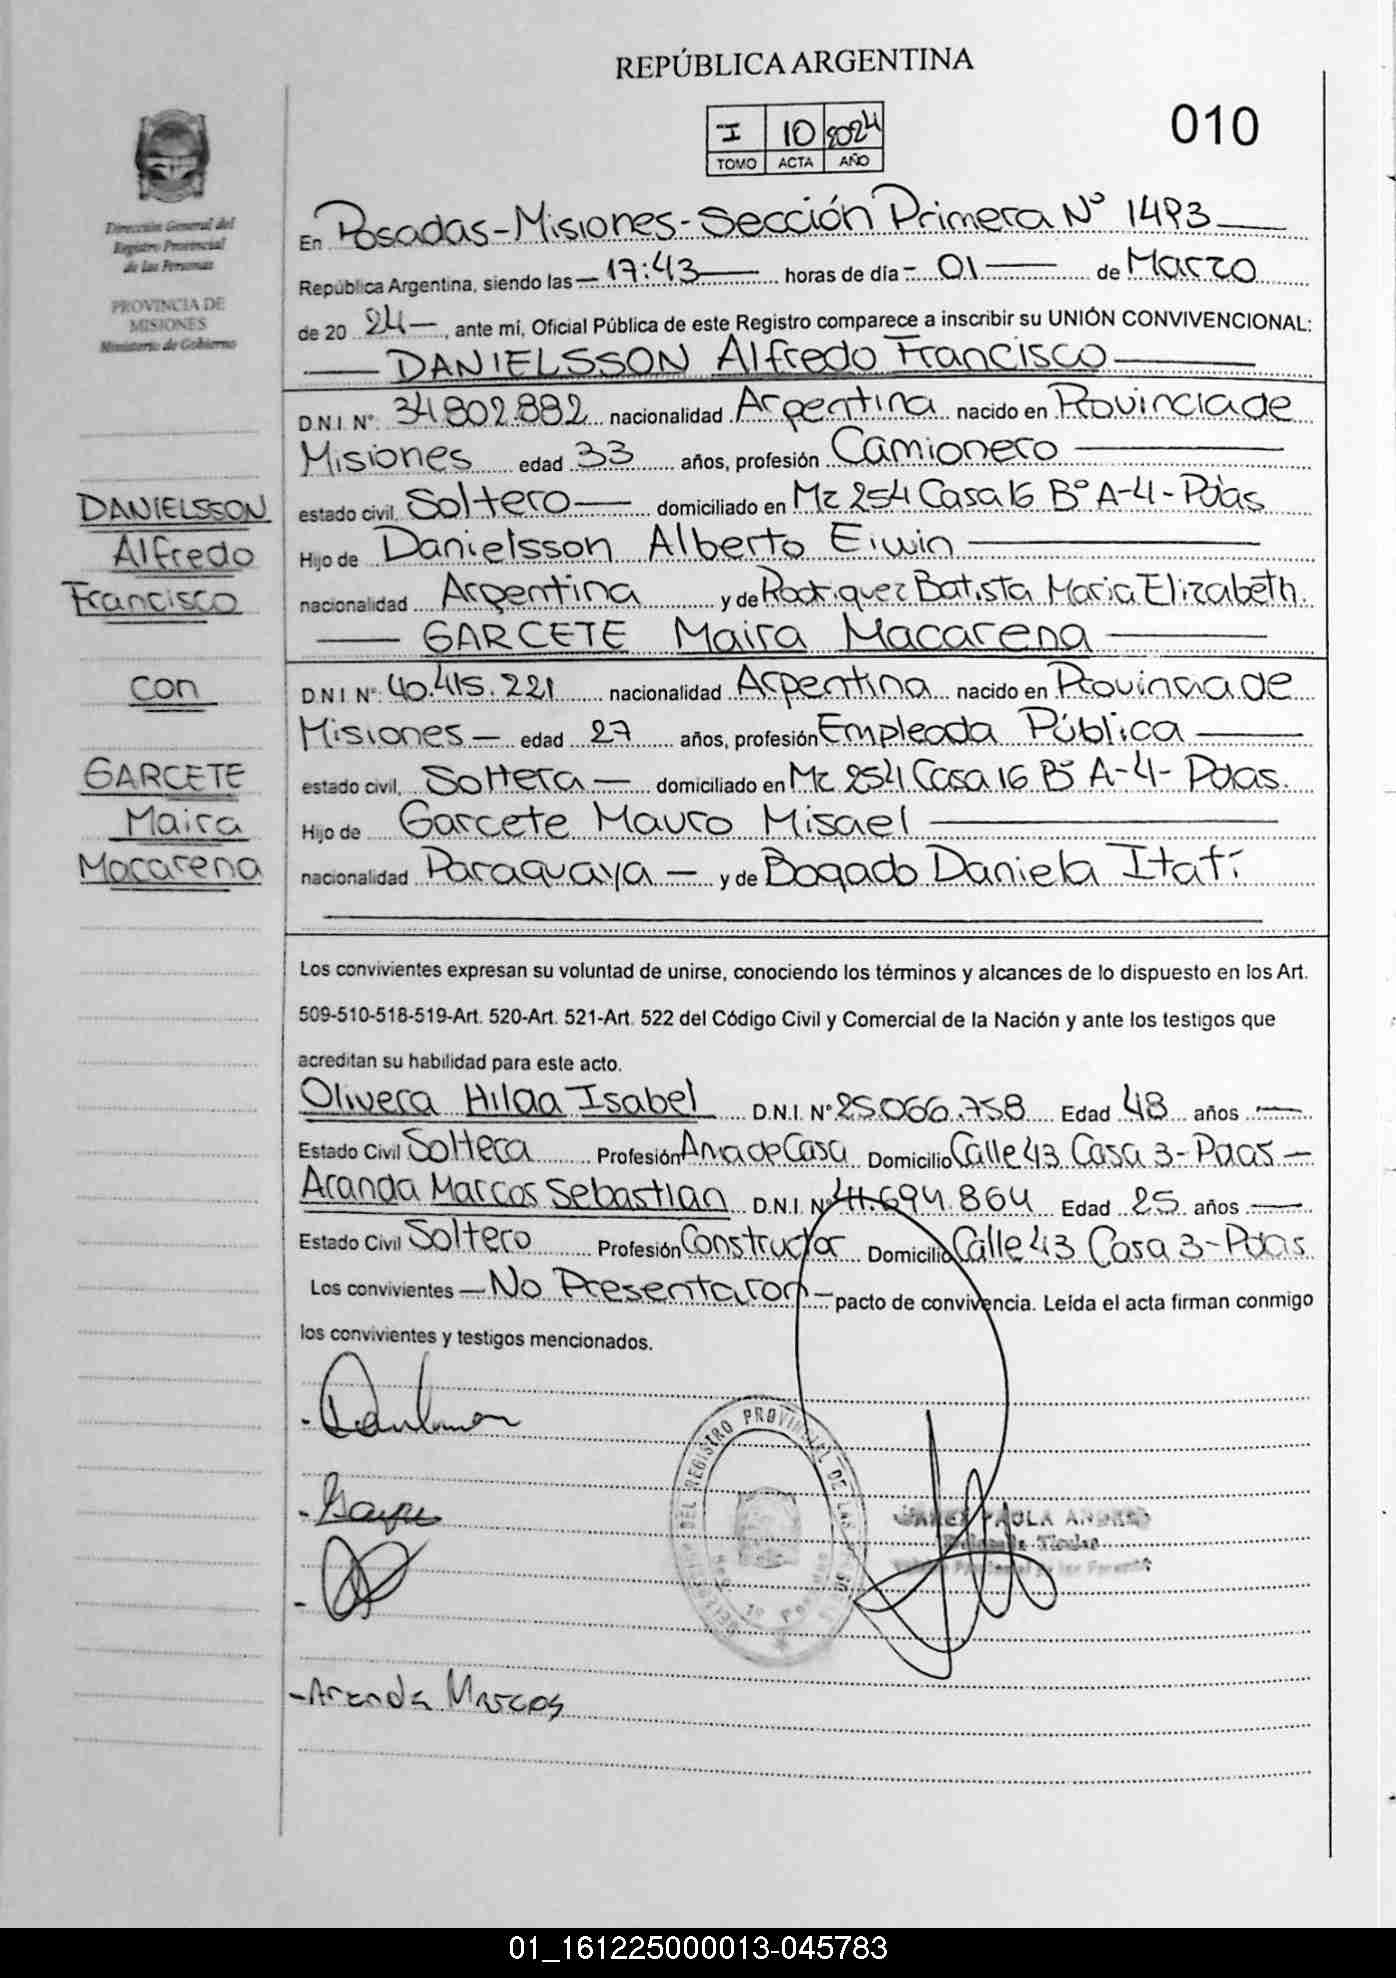 REPÚBLICA ARGENTINA
I 10 2024
TOMO ACTA AÑO
010
Dirección General del
Registro Provincial
de las Personas
PROVINCIA DE
MISIONES
Ministerio de Gobierno
En Posadas-Misiones-Sección Primera Nº 1493
República Argentina, siendo las 17:43 horas de día 01 de Marzo
de 2024, ante mí, Oficial Pública de este Registro comparece a inscribir su UNIÓN CONVIVENCIONAL:
DANIELSSON Alfredo Francisco
D.N.I. Nº: 34.802.882 nacionalidad Argentina nacido en Provincia de
Misiones edad 33 años, profesión Camionero
estado civil, Soltero domiciliado en Mz 254 Casa 16 Bº A-4-Pdas
Hijo de Danielsson Alberto Eiwin
nacionalidad Argentina y de Rodriguez Batista Maria Elizabeth.
GARCETE Maira Macarena
D.N.I Nº: 40.415.221 nacionalidad Argentina nacido en Provincia de
Misiones edad 27 años, profesión Empleada Pública
estado civil, Soltera domiciliado en Mz 254 Casa 16 Bº A-4- Pdas.
Hijo de Garcete Mauro Misael
nacionalidad Paraguaya y de Bogado Daniela Itatí
DANIELSSON
Alfredo
Francisco
con
GARCETE
Maira
Macarena
Los convivientes expresan su voluntad de unirse, conociendo los términos y alcances de lo dispuesto en los Art.
509-510-518-519-Art. 520-Art. 521-Art. 522 del Código Civil y Comercial de la Nación y ante los testigos que
acreditan su habilidad para este acto.
Olivera Hilda Isabel D.N.I. Nº 25.066.758 Edad 48 años
Estado Civil Soltera Profesión Ama de Casa Domicilio Calle 43 Casa 3-Pdas
Aranda Marcos Sebastian D.N.I. Nº 41.694.864 Edad 25 años
Estado Civil Soltero Profesión Constructor Domicilio Calle 43 Casa 3-Pdas
Los convivientes No Presentaron pacto de convivencia. Leída el acta firman conmigo
los convivientes y testigos mencionados.
DEL REGISTRO PROVINCIAL DE LAS
PAOLA ANDREA
Titular
-Aranda Marcos
01_161225000013-045783